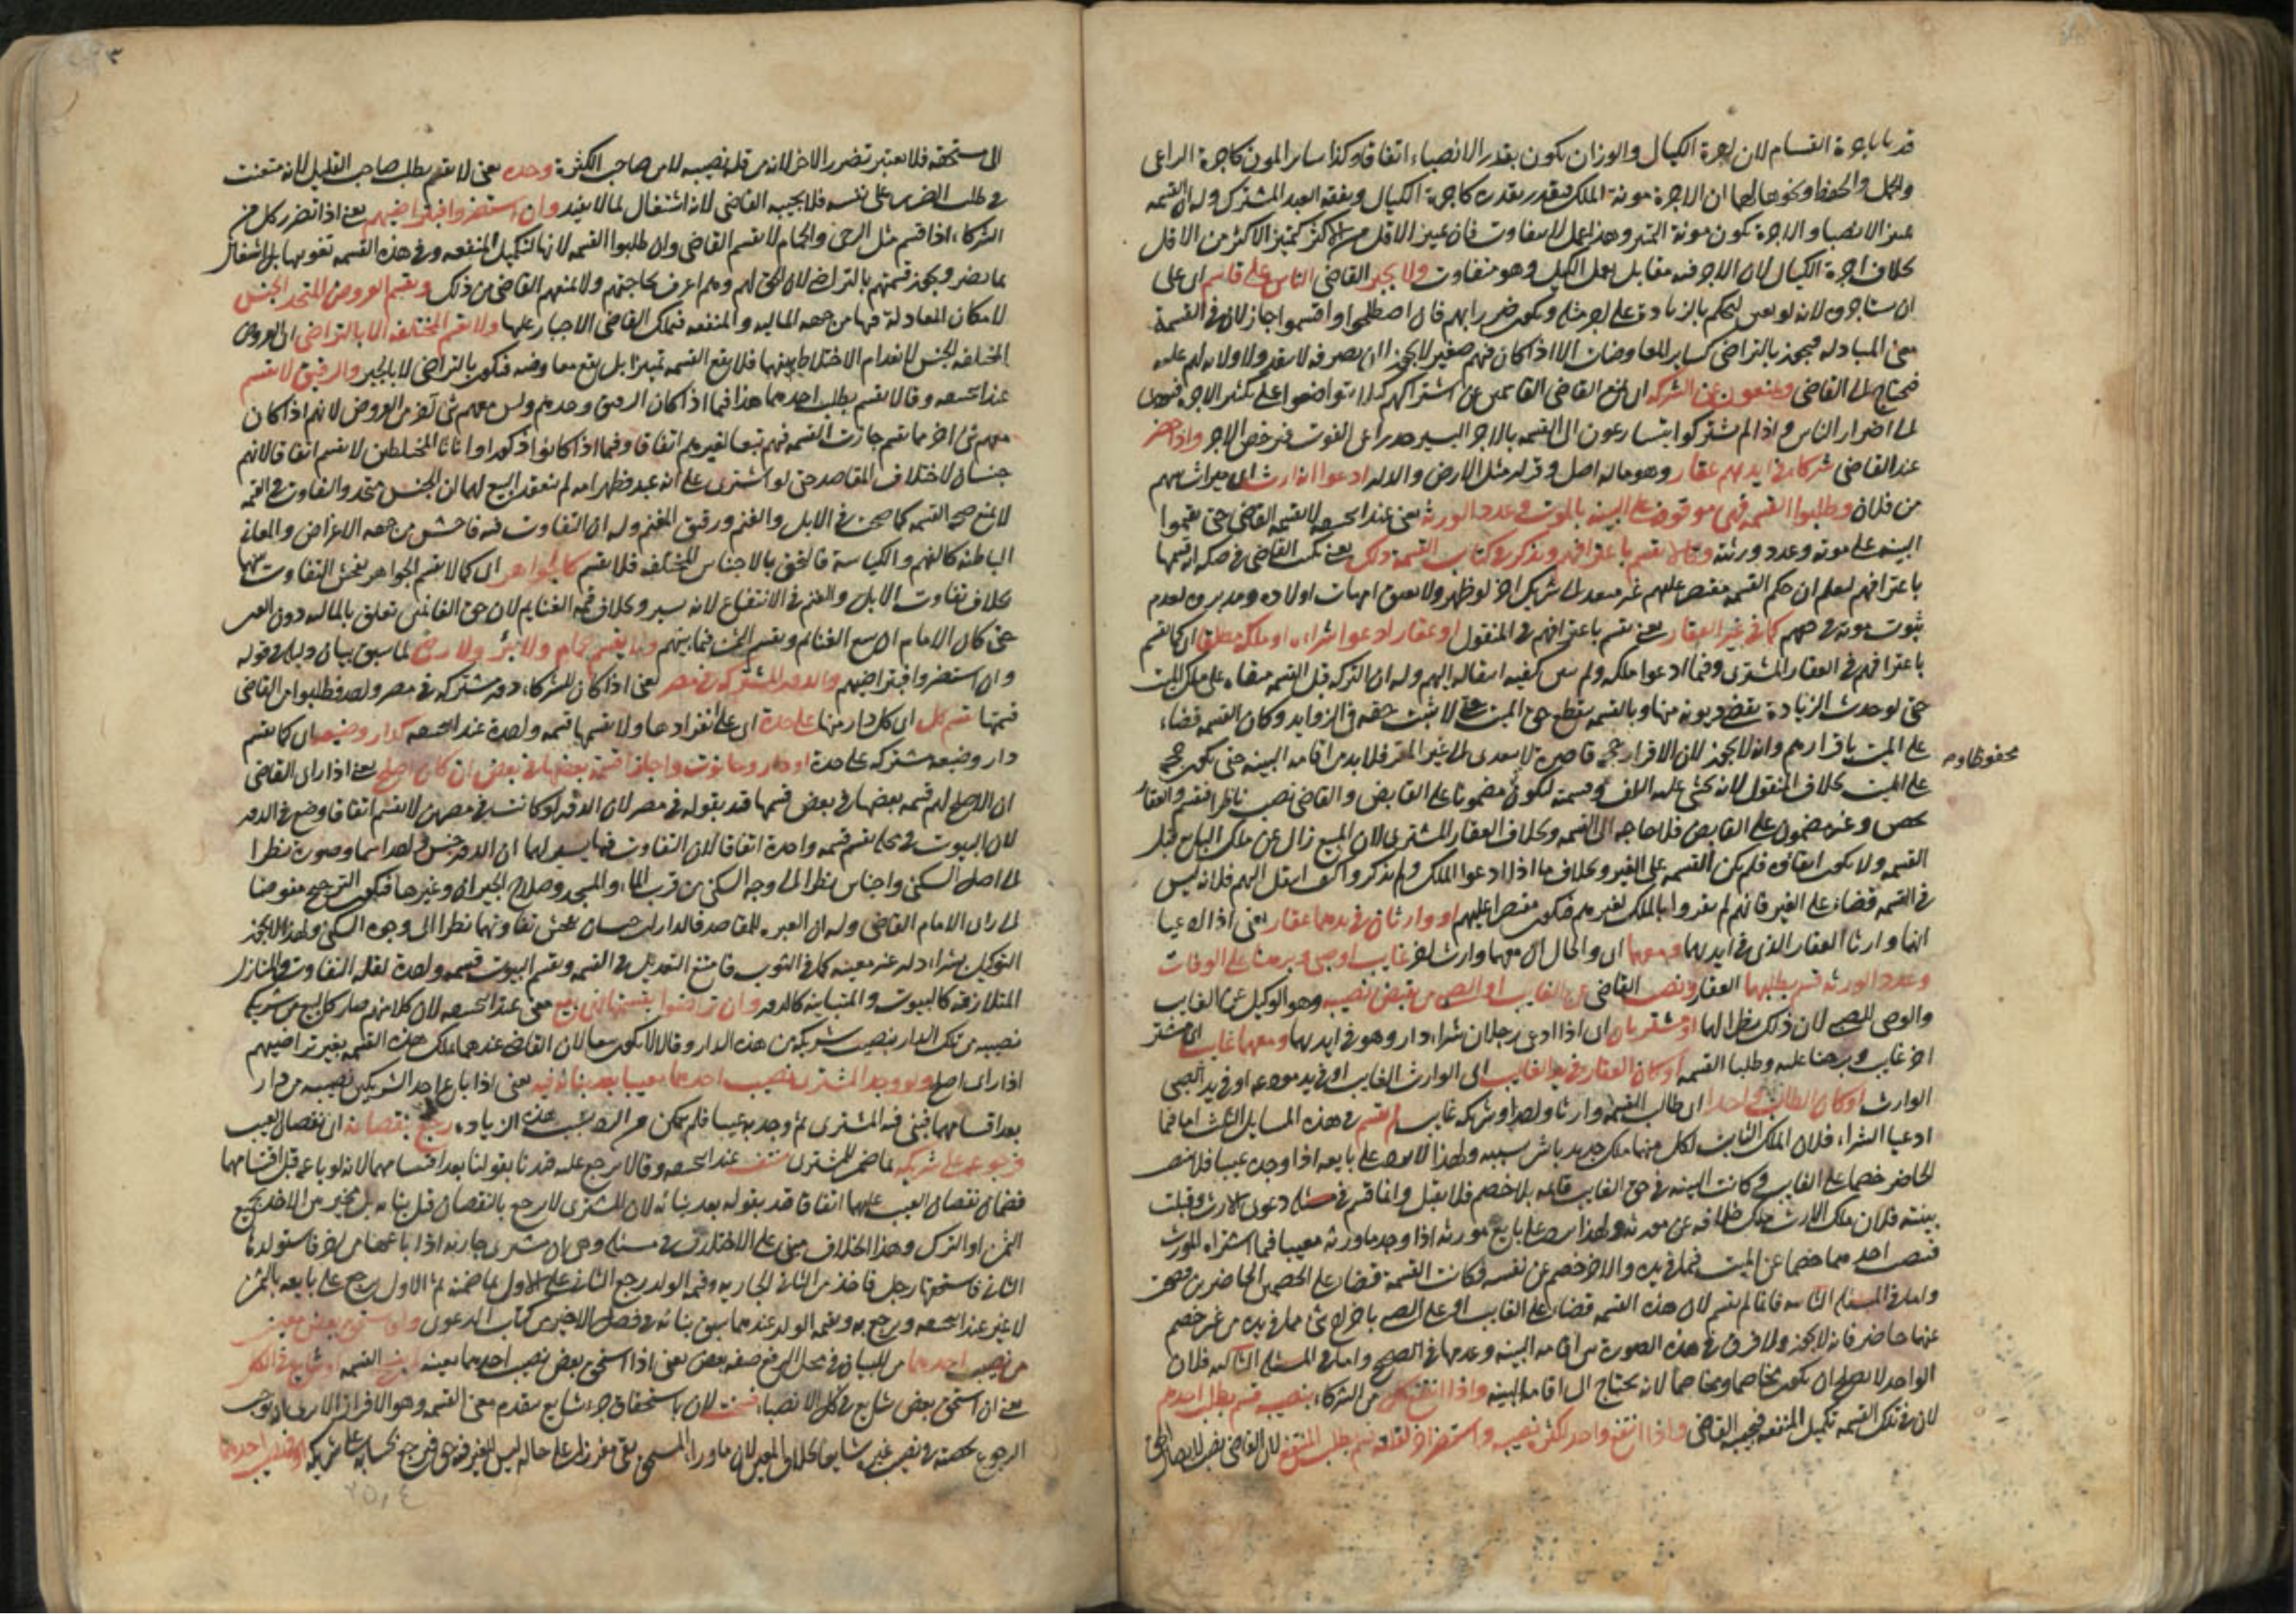 قد باجرة القسام لان اجرة الكيال والوزان يكون بقدر الانصباء اتفاقا وكذا سائر المون كاجرة الراعي
والحمل والحفظ ونحوها لهما ان الاجرة مونة الملك فيقدر بقدره كاجرة الكيال ونفقة العبد المشترك وله ان القسمة
الانصباء والاجرة يكون مونة التميز وهذا العمل لا يتفاوت فان تميز الاقل من الاكثر كتميز الاكثر من الاقل
بخلاف اجرة الكيال لان الاجر فيه مقابل بعمل الكيل وهو متفاوت ولا يجبر القاضي الناس على قاسم اي على
ان يستاجروه لانه لو تعين لتحكم بالزيادة على اجر مثله ويكون ضررا بهم فان اصطلحوا واقتسموا جاز لان في القسمة
معنى المبادلة فيجوز بالتراضي كسائر المعاوضات الا اذا كان فيهم صغير لا يجوز لان تصرفه لا ينفذ ولا ولاية لهم عليه
فيحتاج الى القاضي ويمنعون عن الشركة اي يمنع القاضي القاسمين عن اشتراكهم كيلا يتواضعوا على تكثير الاجر فيؤدى
الى اضرار الناس واذا لم يشتركوا يتسارعون الى القسمة بالاجر اليسير حذرا عن الفوت فيرخص الاجر واذا حضر
عند القاضي شركاء في ايديهم عقار وهو ماله اصل وقرار مثل الارض والدار ادعوا انه ارث اي ميراث بينهم
من فلان وطلبوا القسمة فهي موقوفة على البينة بالموت وعدد الورثة يعني عند ابي حنيفة لا يقسمه القاضي حتى يقيموا
البينة على موته وعدد ورثته وقالا يقسم باعترافهم ويذكر في كتاب القسمة ذلك يعني يكتب القاضي في صكه انه قسمها
باعترافهم ليعلم ان حكم القسمة مقتصر عليهم غير متعد الى شريك اخر لو ظهر ولا يعتق امهات اولاده ومدبروه لعدم
ثبوت موته في حقهم كما في غير العقار يعني يقسم باعترافهم في المنقول او عقار ادعوا شراءه او ملكه مطلق اي كما يقسم
باعترافهم في العقار المشترى وفيما ادعوا ملكه ولم يبين كيفية انتقاله اليهم وله ان التركة قبل القسمة مبقاة على ملك الميت
حتى لو حدثت الزيادة يقضى ديونه منها وبالقسمة ينقطع حق الميت حتى لا يثبت حقه في الزوايد وكان القسمة قضاء
على الميت باقرارهم وانه لا يجوز لان الاقرار حجة قاصرة لا يتعدى الى غير المقر فلا بد من اقامة البينة حتى يكون حجة
محفوظا ومه
على الميت بخلاف المنقول لانه يخشى عليه التلف وقسمته ليكون مضمونا على القابض والقاضي نصب ناظرا فيقسم والعقار
محصن وغير مضمون على القابض فلا حاجة الى القسمة وبخلاف العقار المشترى لان المبيع زال عن ملك البايع قبل
القسمة ولا يكون فلم يكن القسمة على الغير وبخلاف ما اذا ادعوا الملك ولم يذكروا كيف انتقل اليهم فلانه ليس
في القسمة قضاء على الغير فانهم لم يقروا بالملك لغيرهم فيكون مقتصرا عليهم او وارثان في يدهما عقار يعني اذا ادعيا
انهما وارثا العقار الذي في ايديهما ومعهما اي والحال ان معهما وارث اخر غايب او صبي وبرهنا على الوفات
وعدد الورثة قسم بطلبهما العقار ونصب القاضي عن الغايب او الصبي من يقبض نصيبه وهو الوكيل عن الغايب
والوصي للصبي لان ذلك نظر لهما او مشتريان اي اذا ادعى رجلان شراء دار وهو في ايديهما ومعهما غايب اي مشتر
اخر غايب وبرهنا عليه وطلبا القسمة او كان العقار في يد الغايب اي الوارث الغايب او في يد مودعه او في يد الصبي
الوارث او كان الطالب واحدا اي طالب القسمة وارثا واحدا وشريكه غايب لم يقسم في هذه المسايل الثلث اما فيما
ادعيا الشراء فلان الملك الثابت لكل منهما ملك جديد باشر سببه ولهذا لا يرد على بايعه اذا وجده عيبا فلا ينتصب
الحاضر خصما على الغايب وكانت البينة في حق الغايب قائمة بلا خصم فلا يقبل وانما قسم في مسئلة دعوى الارث وقبلت
بينته فلان ملك الارث ملك خلافة عن مورثه ولهذا يرد على بايع مورثه اذا وجد ما ورثه معيبا فيما اشتراه المورث
فينتصب احدهما خصما عن الميت فيما في يده والاخر خصم عن نفسه فكانت القسمة قضاء على الخصمين الحاضرين فصحت
واما في المسئلة الثانية فانما لم يقسم لان هذه القسمة قضاء على الغايب او على الصبي باخراج شئ مما في يده من غير خصم
عنهما حاضر فانه لا يجوز ولا فرق في هذه الصورة بين اقامة البينة وعدمها في الصحيح واما في المسئلة الثالثة فلان
الواحد لا يصلح ان يكون مخاصما ومخاصما لانه يحتاج الى اقامة البينة واذا انتفع كل من الشركاء بنصيبه قسم بطلب احدهم
لان في تلك القسمة تكميل المنفعة فيجيب القاضي واذا انتفع واحد لكثرة نصيبه واستضر اخر لقلته قسم بطلب المنتفع لان القاضي نصب لايصال الحق
الى مستحقه فلا يعتبر تضرر الاخر لانه من قلة نصيبه لا من صاحب الكثرة وحده يعني لا يقسم بطلب صاحب القليل لانه متعنت
في طلب الضرر على نفسه فلا يجيبه القاضي لانه اشتغال لما لا يفيد وان استضروا فبتراضيهم يعني اذا تضرر كل من
الشركاء اذا قسم مثل الرحى والحمام لا يقسم القاضي وان طلبوا القسمة لانها لتكميل المنفعة وفي هذه القسمة تفويتها بل اشتغال
بما يضر ويجوز قسمتهم بالتراضي لان الحق لهم وهم اعرف بحاجتهم ولا يمنعهم القاضي من ذلك ويقسم العروض المتحد الجنس
لامكان المعادلة فيها من جهة المالية والمنفعة فيملك القاضي الاجبار عليها ولا يقسم المختلفة الا بالتراضي اي العروض
المختلفة الجنس لانعدام الاختلاط بينهما فلا يقع القسمة تميزا بل يقع معاوضة فيكون بالتراضي لا بالجبر والرقيق لا يقسم
عند ابي حنيفة وقالا يقسم بطلب احدهما هذا فيما اذا كان الرقيق وحدهم وليس معهم شئ اخر من العروض لانهم اذا كان
معهم شئ اخر مما يقسم جازت القسمة فيهم تبعا لغيرهم اتفاقا وفيما اذا كانوا ذكورا او اناثا المختلطين لا يقسم اتفاقا لانهم
جنسان لاختلاف المقاصد حتى لو اشترى على انه عبد فظهر امة لم ينعقد البيع لهما ان الجنس متحد والتفاوت في القيمة
لا يمنع صحة القسمة كما صحت في الابل والغنم ورقيق المغنم وله ان التفاوت فيه فاحش من جهة الاغراض والمعاني
الباطنة كالفهم والكياسة فالتحق بالاجناس المختلفة فلا يقسم كالجواهر اي كما لا يقسم الجواهر لفحش التفاوت بينها
بخلاف تفاوت الابل والغنم في الانتفاع لانه يسير وبخلاف قيمة الغنايم لان حق الغانمين تعلق بالمالية دون العين
حتى كان الامام ان يبيع الغنائم ويقسم الثمن فيما بينهم ولا يقسم حمام ولا بئر ولا رحى لما سبق بيان دليل في قوله
وان استضروا فبتراضيهم والدور المشتركة في مصر يعني اذا كان للشركاء دور مشتركة في مصر واحد فطلبوا من القاضي
قسمتها قسم كل اي كل دار منها على حدة اي على انفرادها ولا يقسمها قسمة واحدة عند ابي حنيفة كدار وضيعة اي كما يقسم
دار وضيعة مشتركة على حدة او دار وحانوت واجازا قسمة بعضها في بعض ان كان اصلح يعني اذا راى القاضي
ان الاصلح لهم قسمة بعضها في بعض قسمها قيد بقوله في مصر لان الدور لو كانت في مصرين لا يقسم اتفاقا ووضع في الدور
لان البيوت في محلة يقسم قسمة واحدة اتفاقا لان التفاوت فيها يسير لهما ان الدور جنس واحد اسما وصورة نظرا
الى اصل السكنى واجناس نظرا الى وجه السكنى من قرب الماء والمسجد وصلاح الجيران وغيرها فيكون الترجيح مفوضا
الى راي الامام القاضي وله ان العبرة للمقاصد فالداران جنسان لفحش تفاوتهما نظرا الى وجوه السكنى ولهذا لا يجوز
التوكيل بشراء دار غير معينة كما في الثوب فامتنع التعديل في القسمة ويقسم البيوت قسمة واحدة لقلة التفاوت والمنازل
المتلازقة كالبيوت والمتباينة كالدور وان تراضوا بقسمتها فهي بيع يعني عند ابي حنيفة لان كلا منهم صار كالبايع من شريكه
نصيبه من تلك الدار بنصيب شريكه من هذه الدار وقالا لا يكون بيعا لان القاضي عندهما يملك هذه القسمة بغير تراضيهم
اذا راى اصلح ولو وجد المشترى نصيب احدهما معيبا بعد بنائه فيه يعني اذا باع احد الشريكين نصيبه من دار
بعد اقتسامهما فبنى فيه المشتري ثم وجد به عيبا فلم يتمكن من الرد بسبب هذه الزيادة رجع بنقصانه اي نقصان العيب
فرجوعه على شريكه بما ضمن للمشتري منتف عند ابي حنيفة وقالا يرجع عليه قيدنا بقولنا بعد اقتسامهما لانه لو باعه قبل اقتسامهما
فضمان نقصان العيب عليهما اتفاقا قيد بقوله بعد بنائه لان المشتري لا يرجع بالنقصان قبل بنائه بل مخير بين الاخذ بجميع
الثمن او الترك وهذا الخلاف مبني على الاختلاف في مسئلة وهي ان مشتري جارية اذا باعها من اخر فاستولدها
الثاني فاستحقها رجل فاخذ من الثاني الجارية وقيمة الولد رجع الثاني على الاول بما ضمنه ثم الاول يرجع على بايعه بالثمن
لا غير عند ابي حنيفة ويرجع به وبقيمة الولد عندهما سبق بيانه في فصل الاخير من كتاب الدعوى ولو استحق بعض معين
من نصيب احدهما من للبيان في محل الرفع صفة بعض يعني اذا استحق بعض نصيب احدهما بعينه القسمة او شايع في الكل
يعني ان استحق بعض شايع في كل الانصباء فسخت لان باستحقاق جزء شايع ينعدم معنى القسمة وهو الافراز الا يرى انه يوجب
الرجوع بحصته في نصيب غيره شايعا بخلاف المعين لان ما وراء المستحق بقي مفرزا على حاله ليس للغير فيه حق فيرجع بحسابه على شريكه او نصيب احدهما